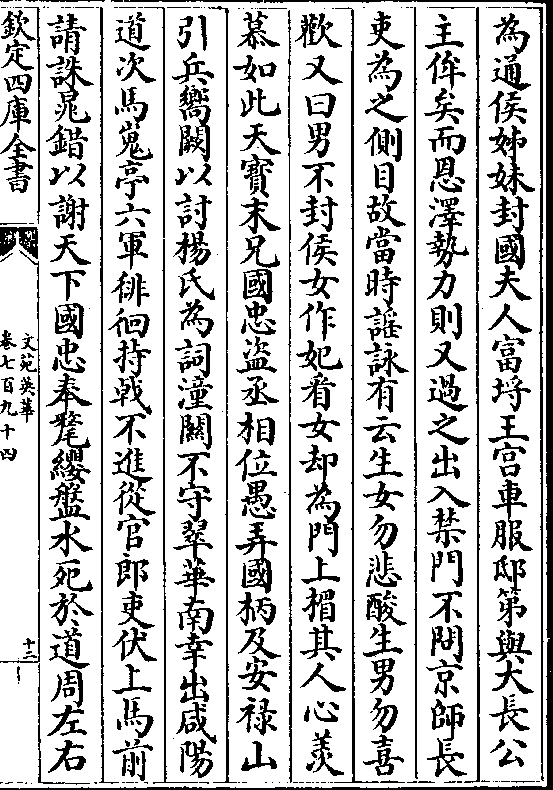 為通侯姊妹封國夫人富埒王宫車服邸第與大長公
主侔矣而恩澤勢力則又過之出入禁門不問京師長
吏為之側目故當時謡詠有云生女勿悲酸生男勿喜
歡又曰男不封侯女作妃看女却為門上楣其人心羡
慕如此天寳末兄國忠盗丞相位愚弄國柄及安禄山
引兵嚮闕以討楊氏為詞潼關不守翠華南幸出咸陽
道次馬嵬亭六軍徘徊持㦸不進從官郎吏伏上馬前
請誅晁錯以謝天下國忠奉氂纓盤水死於道周左右
欽定四庫全書
文苑英華
卷七百九十四
十三